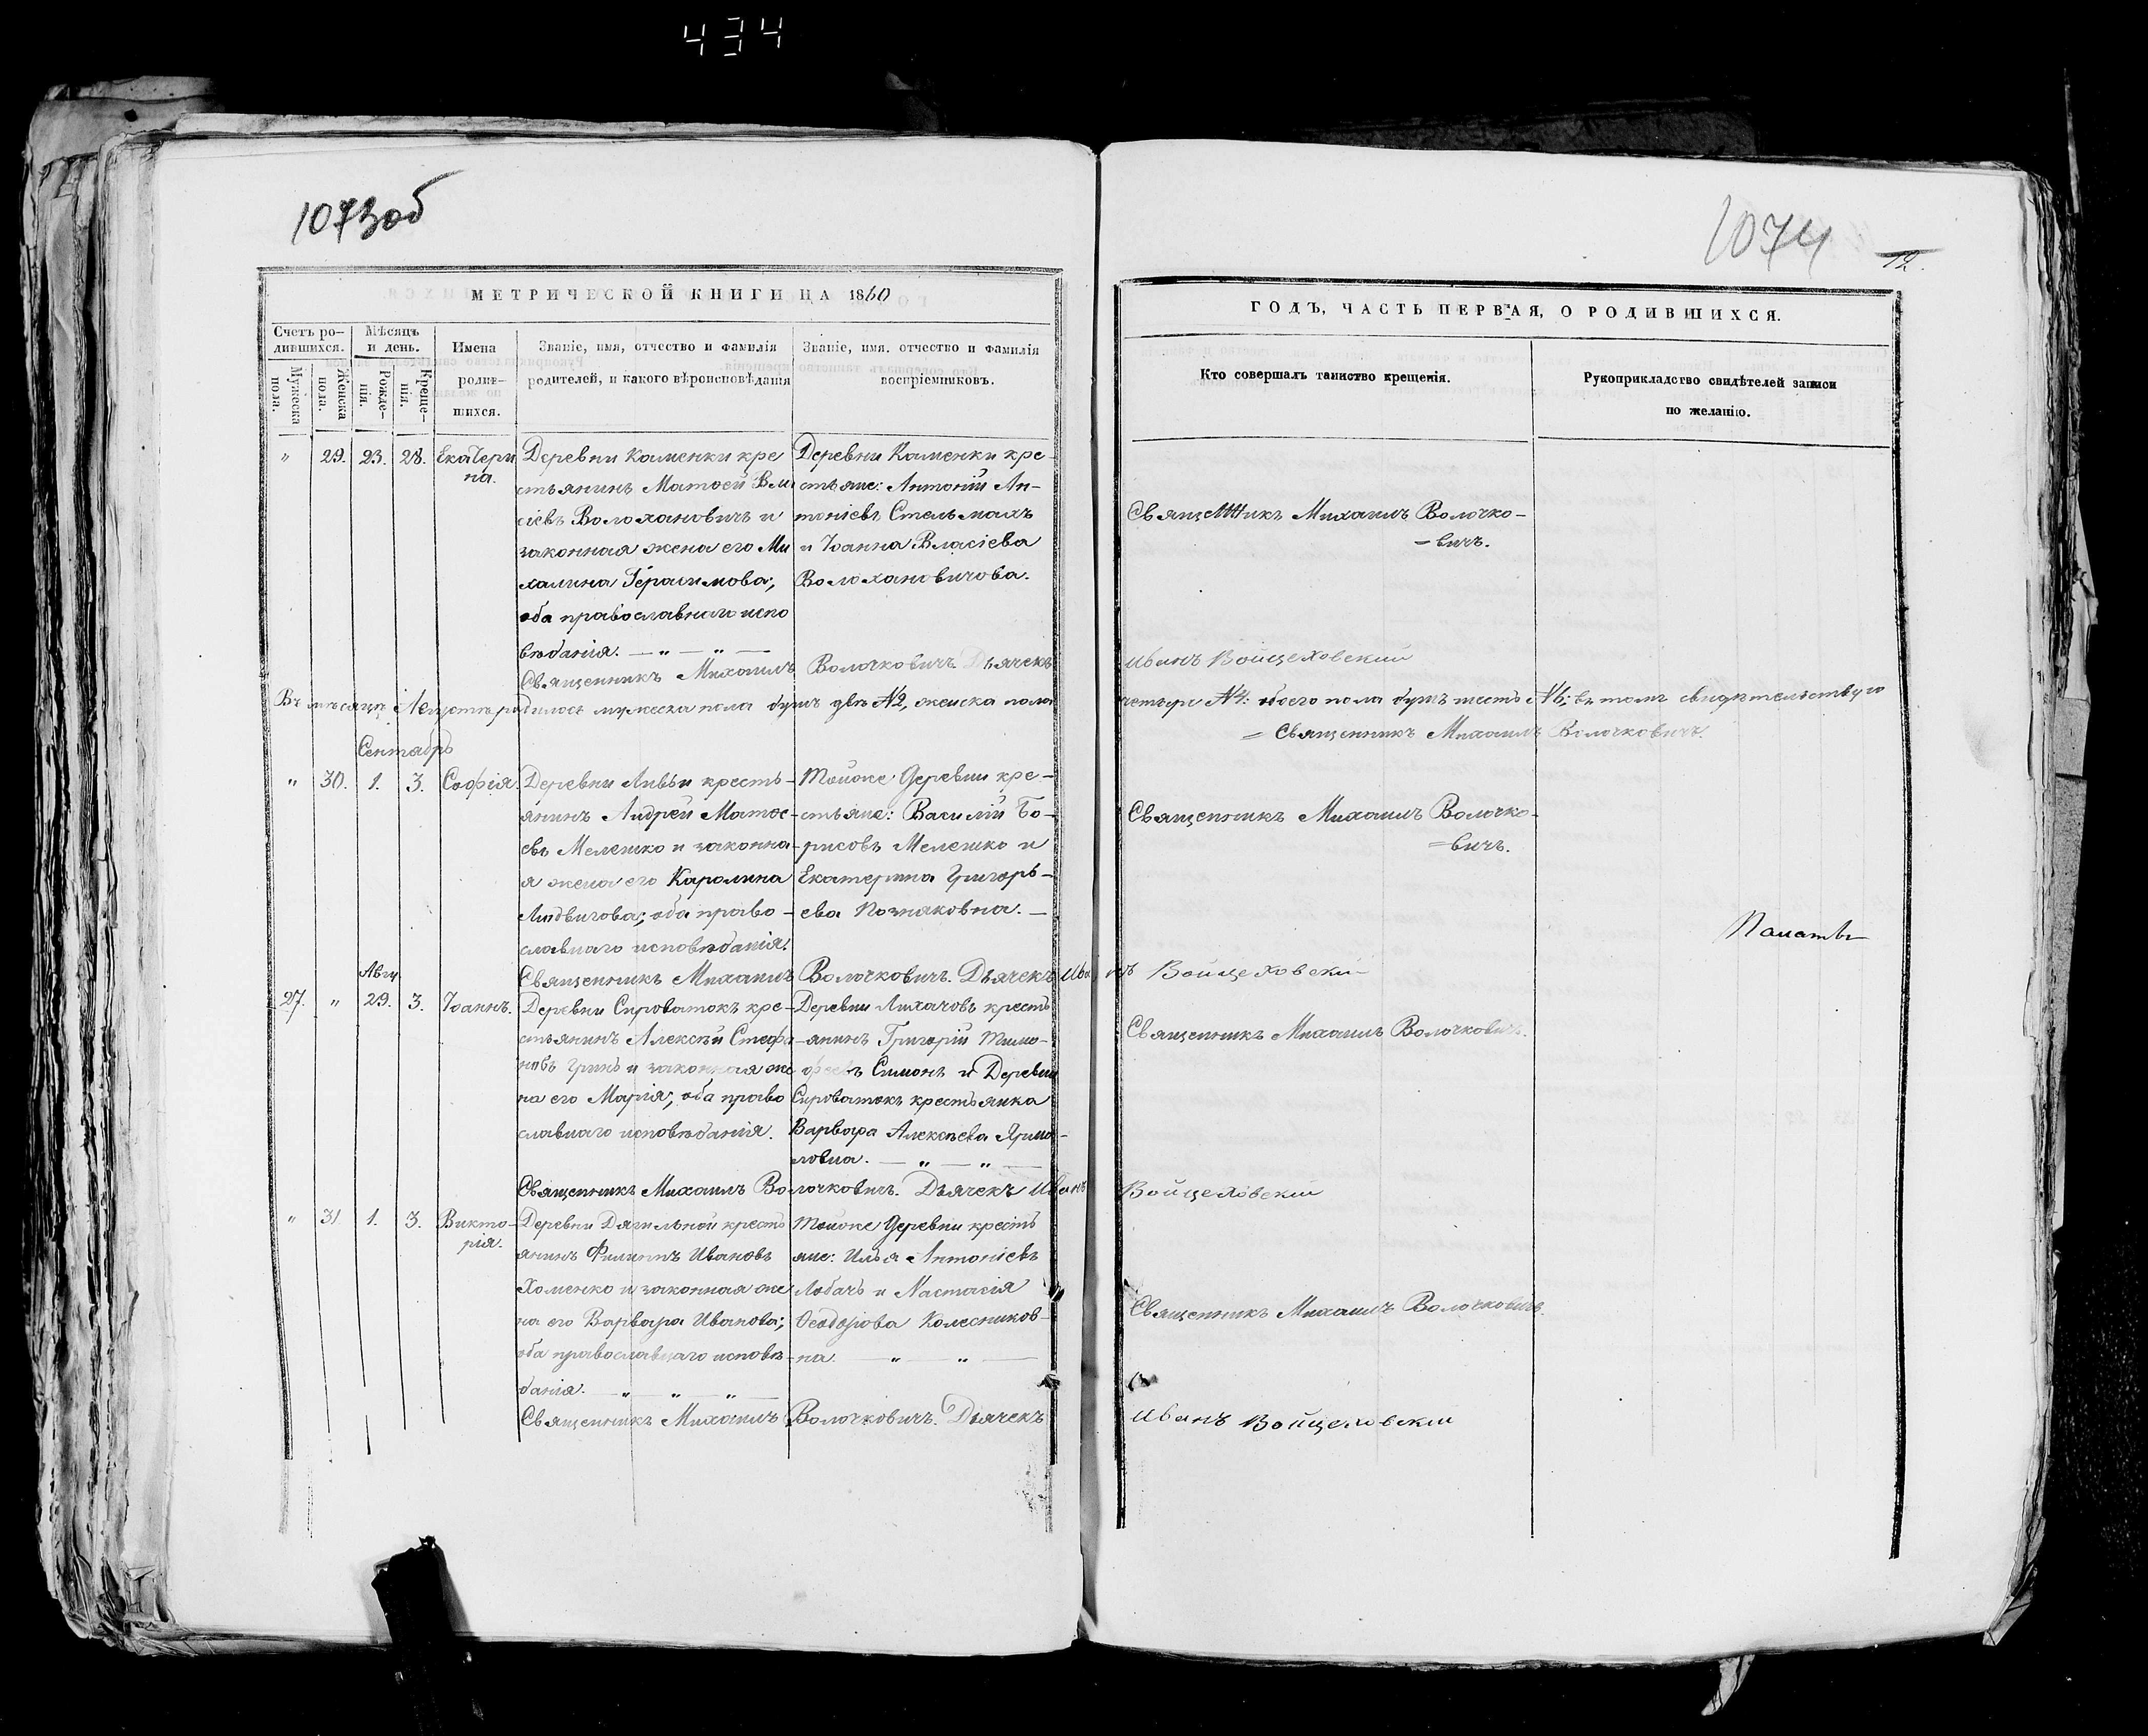 434
1073об
1074
12.
МЕТРИЧЕСКОЙ КНИГИ НА 1860
ГОДЪ, ЧАСТЬ ПЕРВАЯ, О РОДИВШИХСЯ.
Счетъ ро-
дившихся.
Мужеска
пола.
Женска
пола.
Мѣсяцъ
и день.
Рожде-
нія.
Креще-
нія.
Имена
родив-
шихся.
Званіе, имя, отчество и фамилія
родителей, и какого вѣроисповѣданія
Званіе, имя, отчество и фамилія
воспріемниковъ.
Кто совершалъ таинство крещенія.
Рукоприкладство свидѣтелей записи
по желанію.
" 29. 23. 28. Екатери
на.
Деревни Каменки кре
стьянинъ Матѳей Вла
сіевъ Волохановичъ и
законная жена его Ми
халина Герасимова;
оба православнаго испо
вѣданія. — " — " —
Деревни Каменки кре-
стьяне: Антоній Ан-
тоніевъ Стельмахъ
и Іоанна Власіева
Волохановичова.
Священникъ Михаилъ Волочко-
=вичъ.
Священникъ Михаилъ Волочковичъ Дьячекъ Иванъ Войцеховскій
Въ мѣсяцѣ Августѣ родилось мужеска пола душъ двѣ №2, женска пола четыре №4: обоего пола душъ шесть №6; въ томъ свидѣтельствую
= Священникъ Михаилъ Волочковичъ.
Сентябрь
" 30. 1. 3. Софія.
Деревни Ливьи кресть-
янинъ Андрей Матѳе-
евъ Мелешко и законна-
я жена его Каролина
Людвигова; оба право-
славнаго исповѣданія.
Тойже Деревни кре-
стьяне: Василій Бо-
рисовъ Мелешко и
Екатерина Григорь-
ева Познаковна. —
Священникъ Михаилъ Волочко-
=вичъ.
Священникъ Михаилъ Волочковичъ. Дьячекъ Иванъ Войцеховскій
Авгу.
27. " 29. 3. Іоаннъ.
Деревни Сироватокъ кре-
стьянинъ Алексѣй Стефа
новъ Гринь и законная же
на его Марія; оба право
славнаго исповѣданія.
Деревни Лихачовъ кресть
янинъ Григорій Тимо-
фѣевъ Симонъ и Деревни
Сироватокъ крестьянка
Варвара Алексѣева Ярмо-
ловна. — " — " —
Священникъ Михаилъ Волочковичъ.
Священникъ Михаилъ Волочковичъ. Дьячекъ Иванъ Войцеховскій
" 31. 1. 3. Викто-
рія.
Деревни Дягильной кресть
янинъ Филиппъ Ивановъ
Хоменко и законная же
на его Варвара Иванова;
оба православнаго исповѣ-
данія. — " — " — " —
Тойже Деревни кресть
яне: Илья Антоніевъ
Лобачъ и Настасія
Ѳеодорова Колесников-
на. — " — " —
Священникъ Михаилъ Волочковичъ.
Священникъ Михаилъ Волочковичъ. Дьячекъ Иванъ Войцеховскій